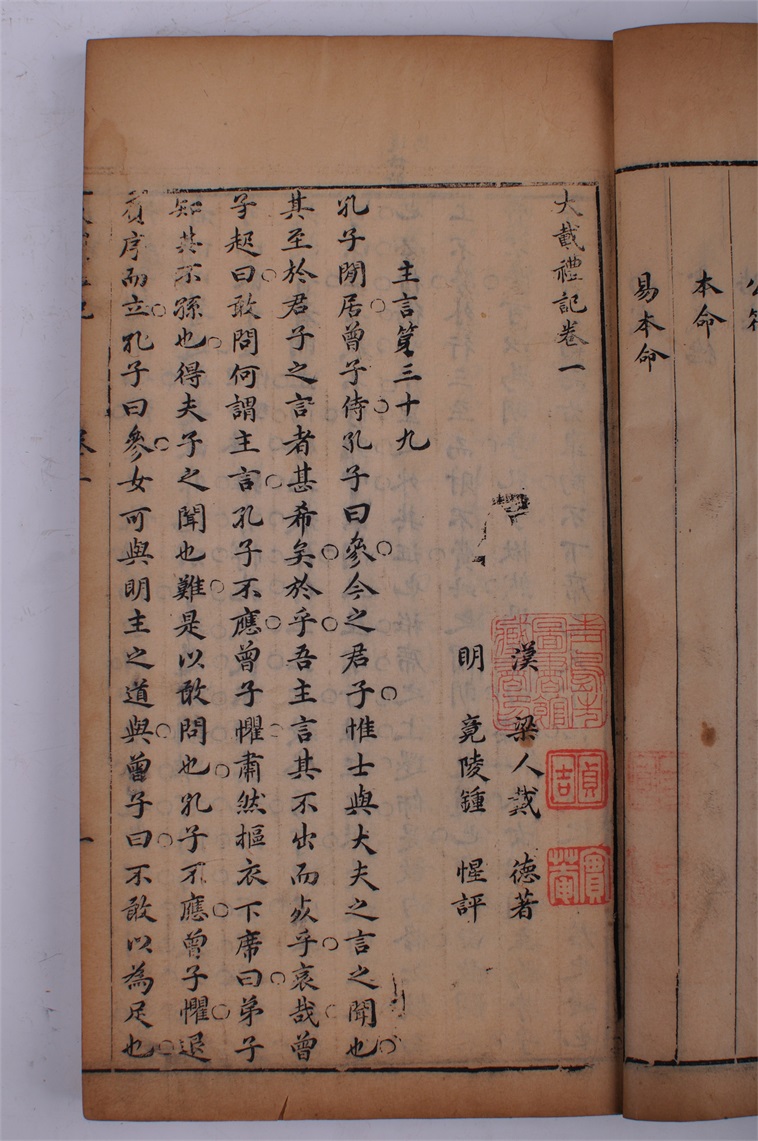 本命
易本命
大戴禮記卷一
漢 梁人戴 德著
明 竟陵鍾 惺評
主言第三十九
孔子閒居曾子侍孔子曰參今之君子惟士與大夫之言之聞也
其至於君子之言者甚希矣於乎吾主言其不出而死乎哀哉曾
子起曰敢問何謂主言孔子不應曾子懼肅然摳衣下席曰弟子
知其不孫也得夫子之聞也難是以敢問也孔子不應曾子懼退
負序而立孔子曰參女可與明主之道與曾子曰不敢以為足也